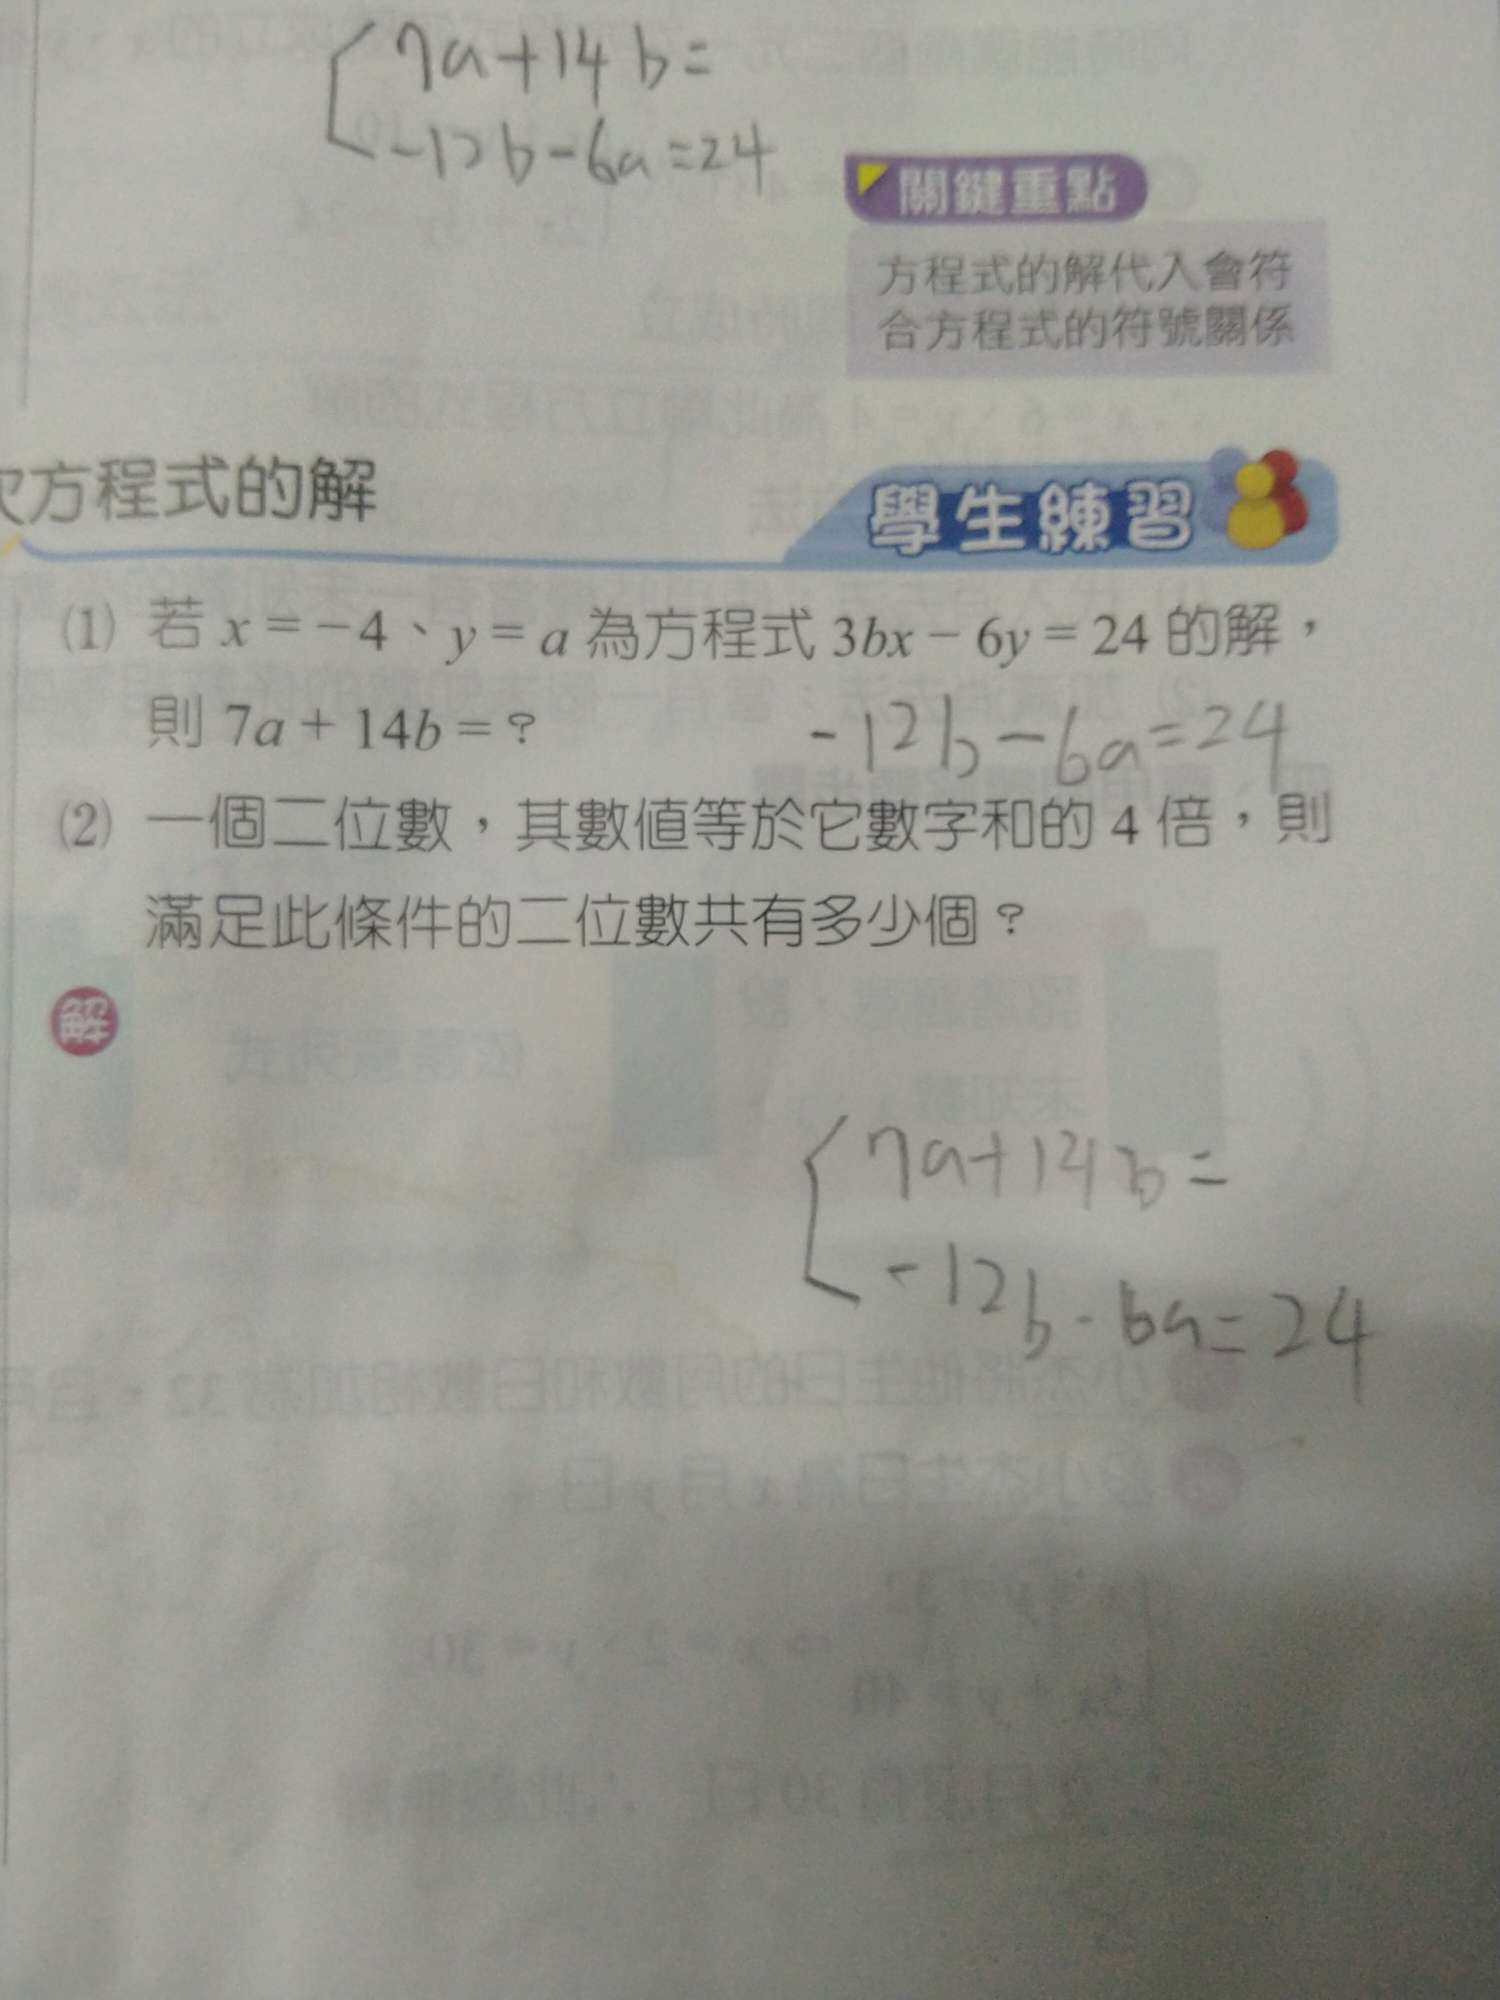 7a+14b=
-12b-6a=24
關鍵重點
方程式的解代入會符
合方程式的符號關係
次方程式的解
學生練習
(1) 若 x = -4、y = a 為方程式 3bx - 6y = 24 的解,
則 7a + 14b = ?
-12b-6a=24
(2) 一個二位數,其數值等於它數字和的 4 倍,則
滿足此條件的二位數共有多少個?
解
7a+14b=
-12b-6a=24